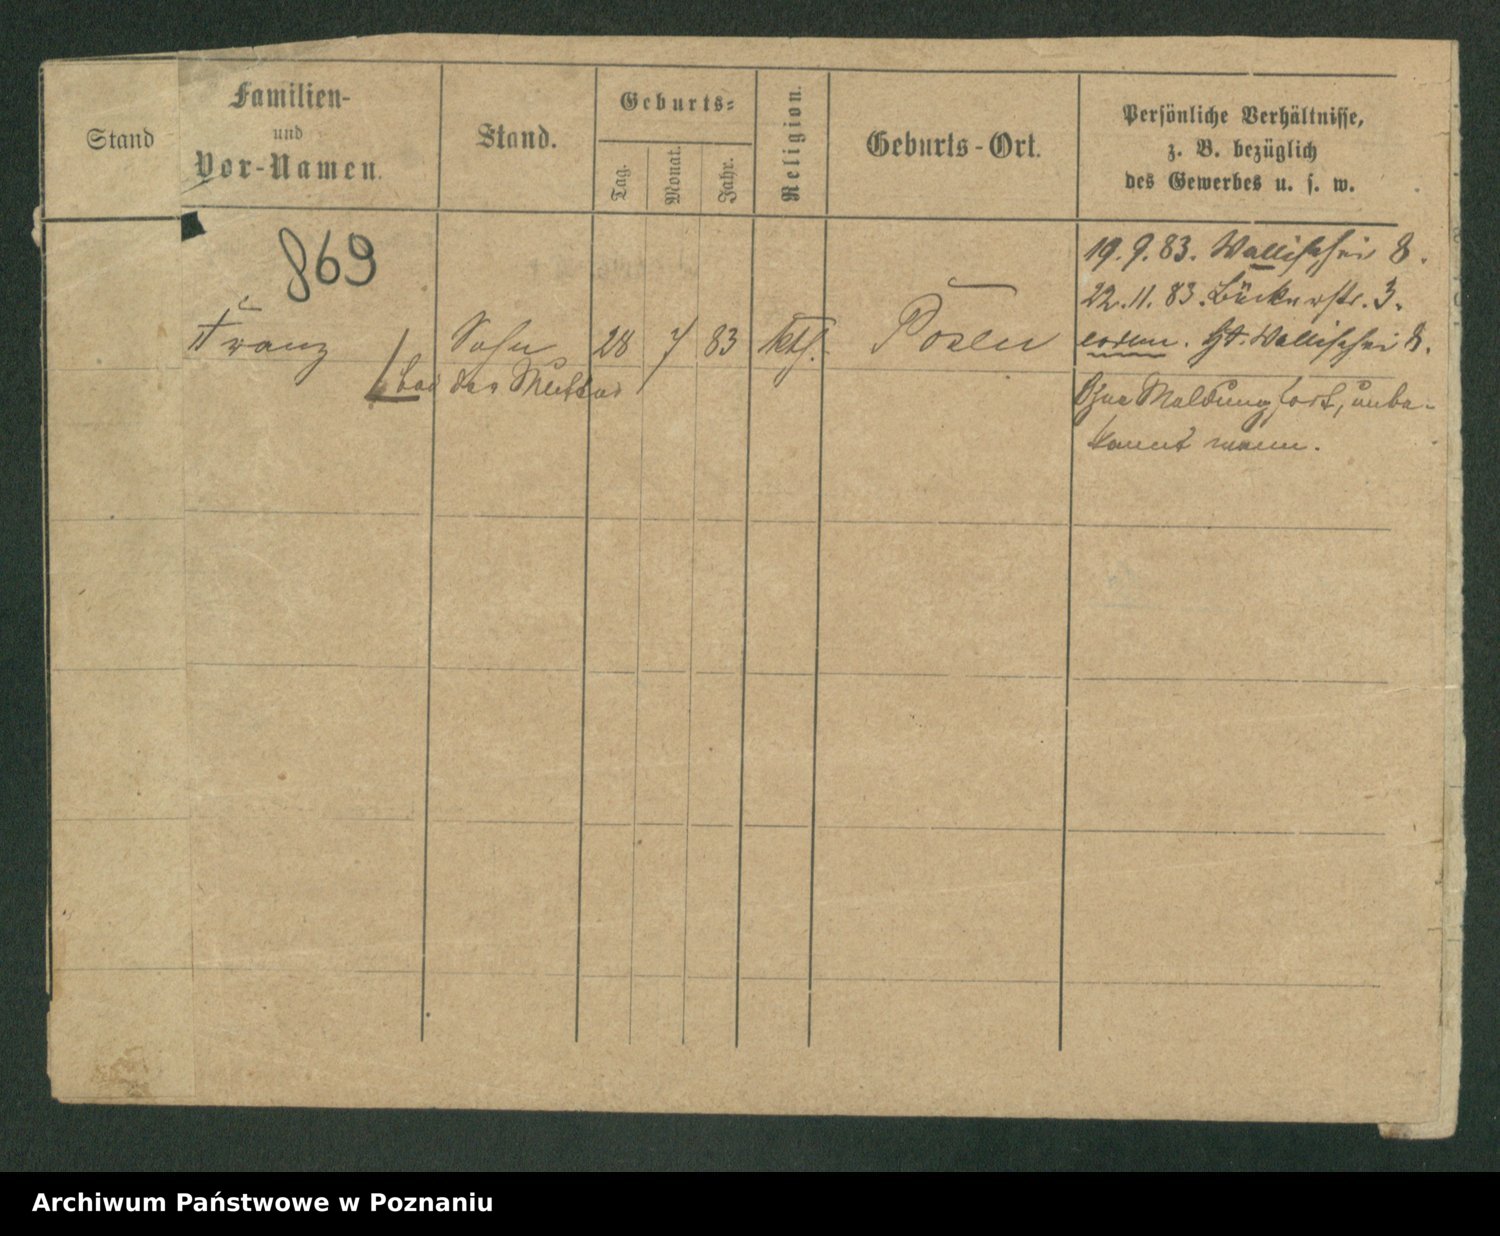 Stand
Familien-
und
Vor-Namen.
Stand.
Geburts-
Tag.
Monat.
Jahr.
Religion.
Geburts-Ort.
Persönliche Verhältnisse,
z. B. bezüglich
des Gewerbes u. s. w.
869
Franz
Sohn
28
7
83
kth.
Posen
bei der Mutter
19. 9. 83. Wallischei 8.
22. 11. 83. Bäckerstr. 3.
eodem. Wallischei 8.
Ohne Meldung fort, unbe-
kannt wann.
Archiwum Państwowe w Poznaniu